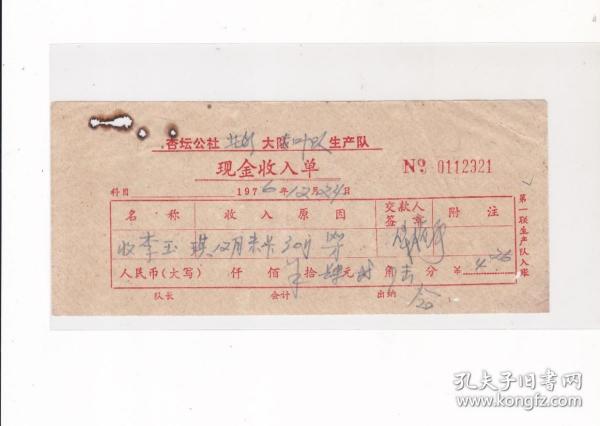 杏坛公社 大队 生产队
现金收入单
№ 0112321
科目 1976年12月24日
名称 收入原因 交款人签章 附注
收李玉琪12月末 30斤
人民币(大写) 仟 佰 拾 肆元 角 分 ¥ 4.26
队长 会计 出纳
第一联生产队入账
孔夫子旧书网
www.kongfz.com